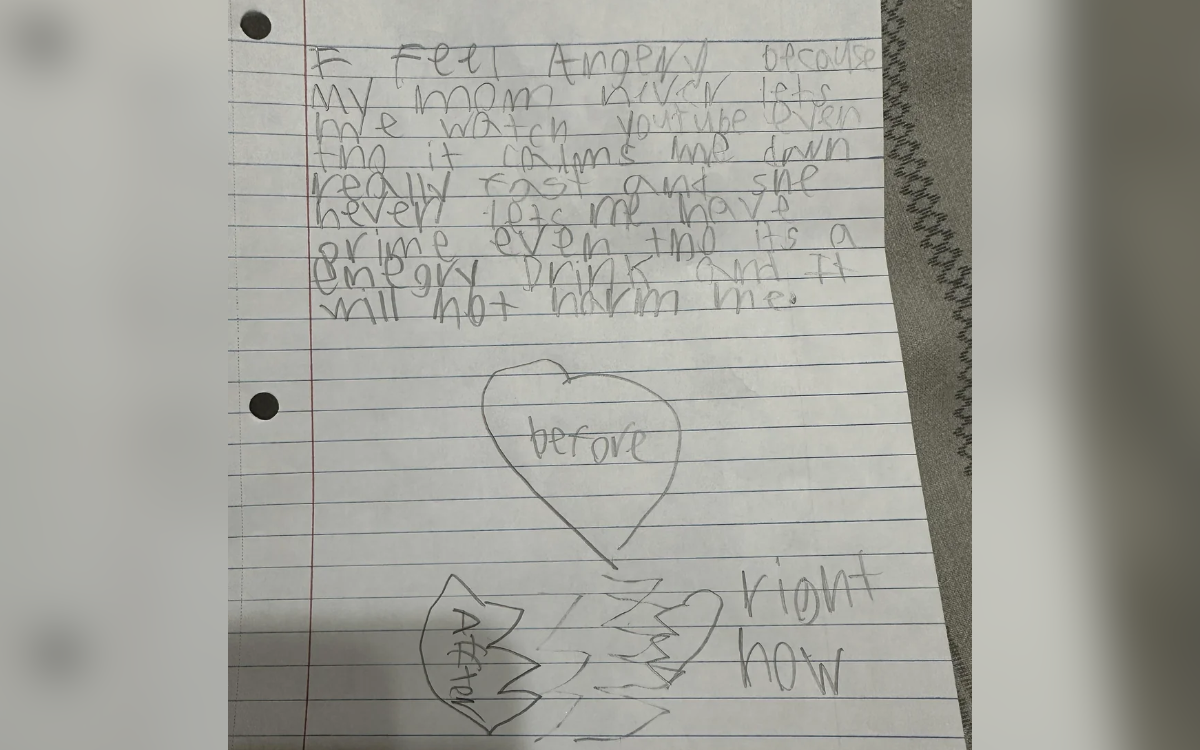 I Feel Angery because
My mom never lets
me watch youtube even
tho it calms me down
really fast and she
never lets me have
prime even tho its a
enegry Drink and It
will not harm me.
before
right
now
Aftter